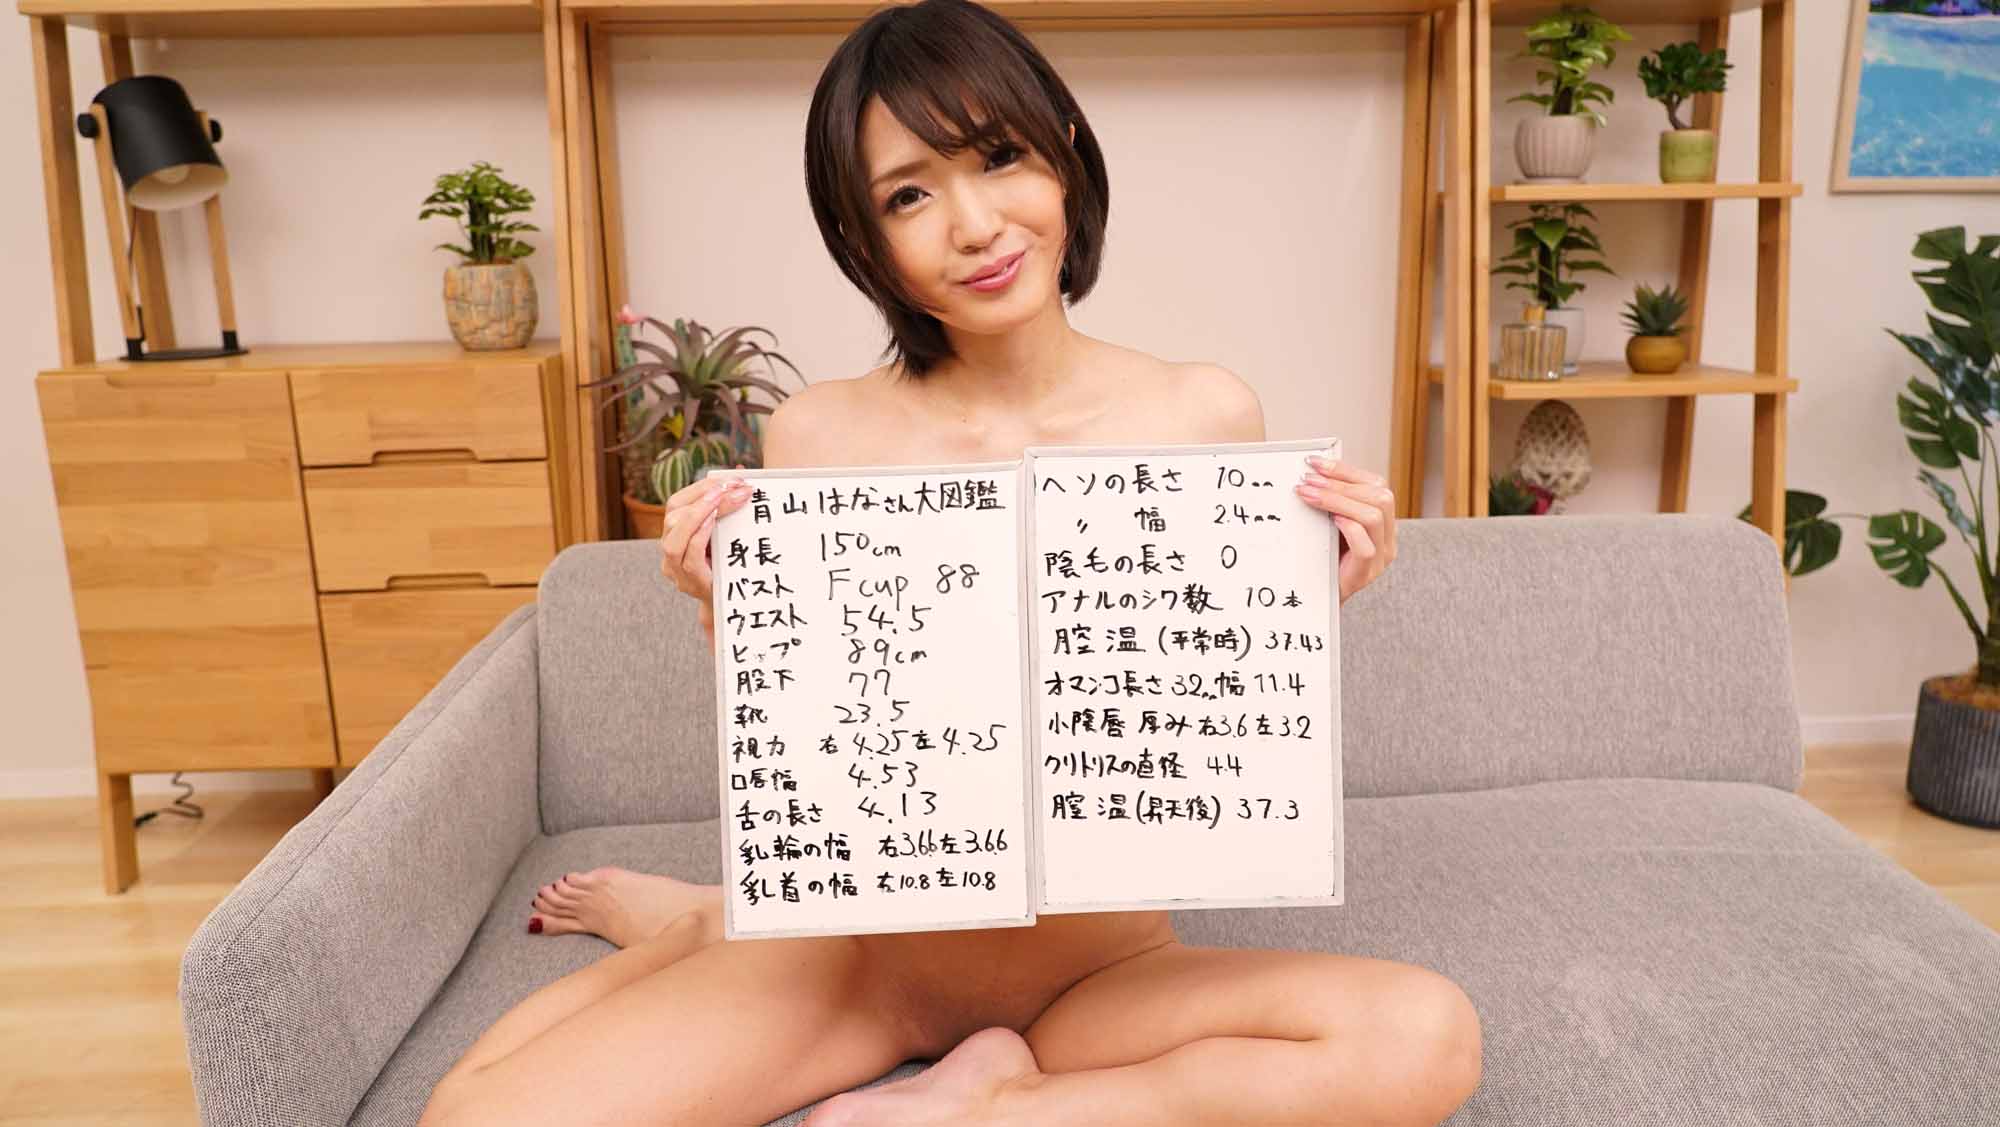 青山はなさん大図鑑
身長 150cm
バスト Fcup 88
ウエスト 54.5
ヒップ 89cm
股下 77
靴 23.5
視力 右4.25左4.25
口唇幅 4.53
舌の長さ 4.13
乳輪の幅 右3.66左3.66
乳首の幅 右10.8左10.8
ヘソの長さ 10mm
〃 幅 2.4mm
陰毛の長さ 0
アナルのシワ数 10本
膣温(平常時) 37.43
オマンコ長さ32mm幅11.4
小陰唇厚み右3.6左3.2
クリトリスの直径 4.4
膣温(昇天後) 37.3